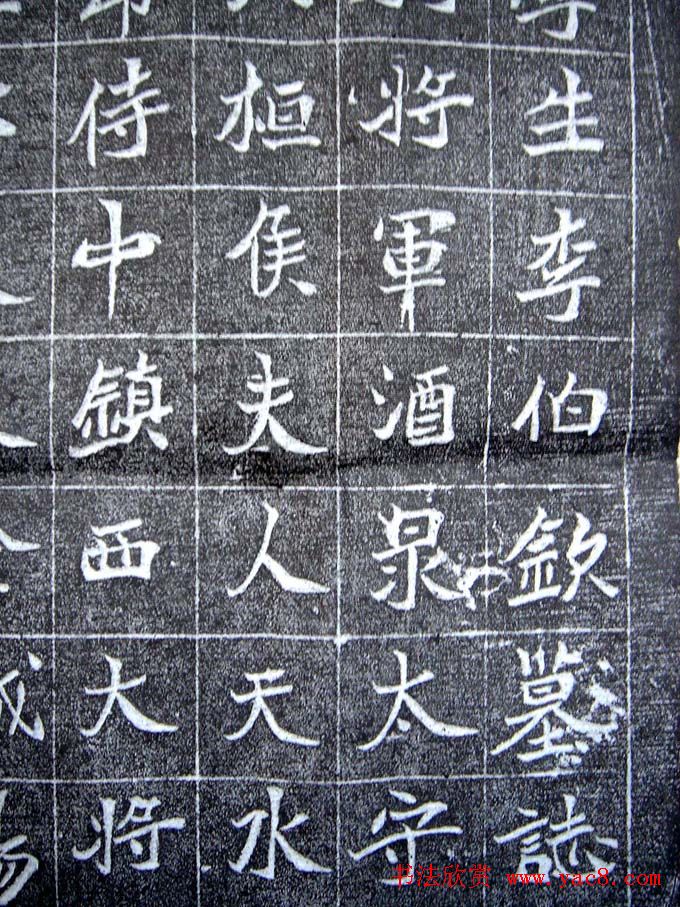 生李伯欽墓誌
將軍酒泉太守
桓侯夫人天水
侍中鎮西大將
书法欣赏 www.yac8.com